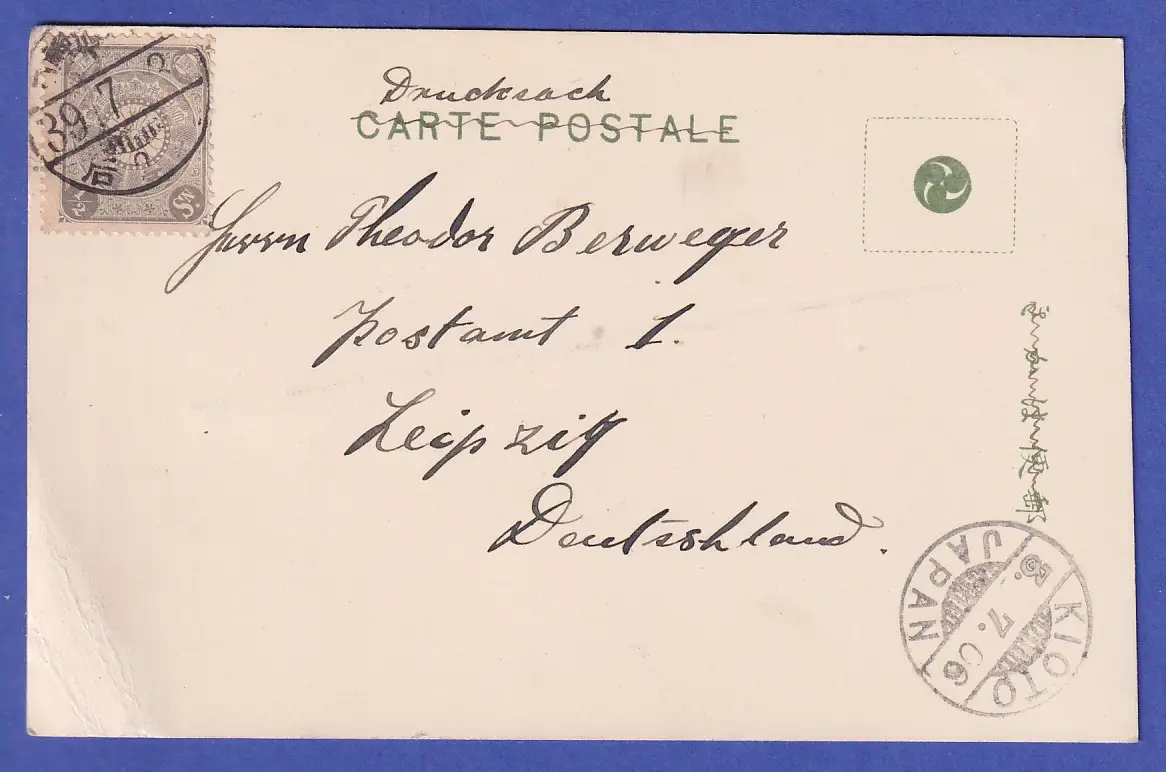 Drucksach
CARTE POSTALE
39 7
Herrn Theodor Berweger
Postamt 1.
Leipzig
Deutschland.
KIOTO
3. 7. 06
JAPAN